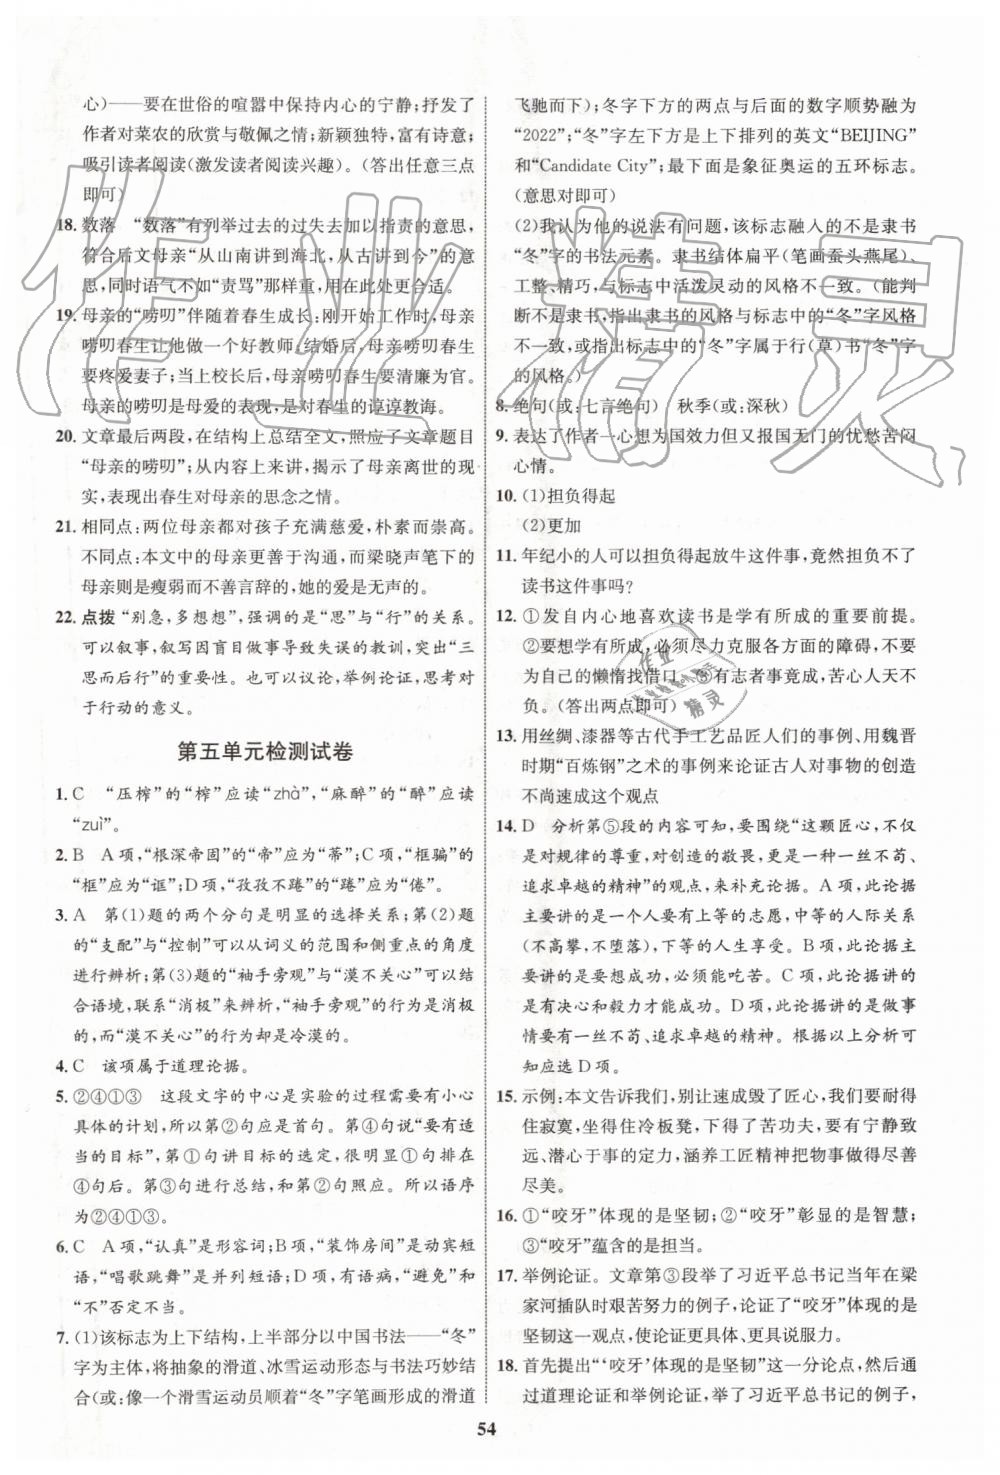 心)——要在世俗的喧嚣中保持内心的宁静;抒发了
作者对菜农的欣赏与敬佩之情;新颖独特,有诗意;
吸引读者阅读(激发读者阅读兴趣)。(答出任意三点
即可)
18. 数落 “数落”有列举过去的过失加以指责的意思,
符合后文母亲“从山南讲到海北,从古讲到今”的意
思,同时语气不如“责骂”那样重,用在此处更准确。
19. 母亲的“唠叨”伴随着春生成长:刚开始工作时,母亲
唠叨春生让他做一个好教师;结婚后,母亲唠叨春生
要疼爱妻子;当上校长后,母亲唠叨春生要清廉为官。
母亲的唠叨是母爱的表现,是对春生的谆谆教诲。
20. 文章最后两段,在结构上总结全文,照应了文章题目
“母亲的唠叨”;从内容上来讲,揭示了母亲离世的现
实,表现出春生对母亲的思念之情。
21. 相同点:两位母亲都对孩子充满慈爱,朴素而崇高。
不同点:本文中的母亲更善于沟通,而梁晓声笔下的
母亲则是瘦弱而不善言辞的,她的爱是无声的。
22. 点拨 “别急,多想想”,强调的是“思”与“行”的关系。
可以叙事,叙写因盲目做事导致失误的教训,突出“三
思而后行”的重要性。也可以议论,举例论证,思考对
于行动的意义。
第五单元检测试卷
1. C “压榨”的“榨”应读“zhà”,“麻醉”的“醉”应读
“zuì”。
2. B A项,“根深帝固”的“帝”应为“蒂”;C项,“框骗”的
“框”应为“诓”;D项,“孜孜不踡”的“踡”应为“倦”。
3. A 第(1)题的两个分句是明显的选择关系;第(2)题
的“支配”与“控制”可以从词义的范围和侧重点的角度
进行辨析;第(3)题的“袖手旁观”与“漠不关心”可以结
合语境,联系“消极”来辨析,“袖手旁观”的行为是消极
的,而“漠不关心”的行为却是冷漠的。
4. C 该项属于道理论据。
5. ②④①③ 这段文字的中心是实验的过程需要有小心
具体的计划,所以第②句应是首句。第④句说“要有适
当的目标”,第①句讲目标的选定,很明显①句排在
④句后。第③句进行总结,和第②句照应。所以语序
为②④①③。
6. C A项,“认真”是形容词;B项,“装饰房间”是动宾短
语,“唱歌跳舞”是并列短语;D项,有语病,“避免”和
“不”否定不当。
7. (1)该标志为上下结构,上半部分以中国书法——“冬”
字为主体,将抽象的滑道、冰雪运动形态与书法巧妙结
合(或:像一个滑雪运动员顺着“冬”字笔画形成的滑道
飞驰而下);冬字下方的两点与后面的数字顺势融为
“2022”;“冬”字左下方是上下排列的英文“BEIJING”
和“Candidate City”;最下面是象征奥运的五环标志。
(意思对即可)
(2)我认为他的说法有问题,该标志融入的不是隶书
“冬”字的书法元素。隶书结体扁平(笔画蚕头燕尾)、
工整、精巧,与标志中活泼灵动的风格不一致。(能判
断不是隶书,指出隶书的风格与标志中的“冬”字风格
不一致,或指出标志中的“冬”字属于行(草)书“冬”字
的风格。)
8. 绝句(或:七言绝句) 秋季(或:深秋)
9. 表达了作者一心想为国效力但又报国无门的忧愁苦闷
心情。
10. (1)担负得起
(2)更加
11. 年纪小的人可以担负得起放牛这件事,竟然担负不了
读书这件事吗?
12. ①发自内心地喜欢读书是学有所成的重要前提。
②要想学有所成,必须尽力克服各方面的障碍,不要
为自己的懒惰找借口。③有志者事竟成,苦心人天不
负。(答出两点即可)
13. 用丝绸、漆器等古代手工艺品匠人们的事例,用魏晋
时期“百炼钢”之术的事例来论证古人对事物的创造
不尚速成这个观点
14. D 分析第⑤段的内容可知,要围绕“这颗匠心,不仅
是对规律的尊重,对创造的敬畏,更是一种一丝不苟、
追求卓越的精神”的观点,来补充论据。A项,此论据
主要讲的是一个人要有上等的志愿,中等的人际关系
(不高攀,不堕落),下等的人生享受。B项,此论据主
要讲的是要想成功,必须能吃苦。C项,此论据讲的
是有决心和毅力才能成功。D项,此论据讲的是做事
情要有一丝不苟、追求卓越的精神。根据以上分析可
知应选D项。
15. 示例:本文告诉我们,别让速成毁了匠心,我们要耐得
住寂寞,坐得住冷板凳,下得了苦功夫,要有宁静致
远、潜心于事的定力,涵养工匠精神把物事做得尽善
尽美。
16. ①“咬牙”体现的是坚韧;②“咬牙”彰显的是智慧;
③“咬牙”蕴含的是担当。
17. 举例论证。文章第③段举了习近平总书记当年在梁
家河插队时艰苦努力的例子,论证了“咬牙”体现的是
坚韧这一观点,使论证更具体、更具说服力。
18. 首先提出“‘咬牙’体现的是坚韧”这一分论点,然后通
过道理论证和举例论证,举了习近平总书记的例子,
54
作业精灵
作业
精灵